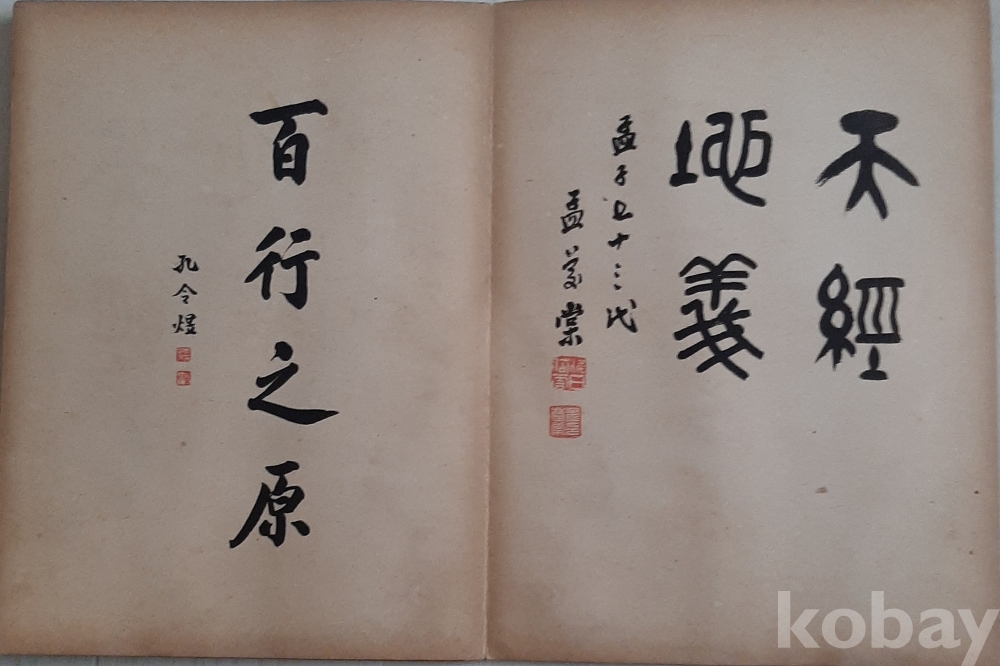 天經
地義
孟子七十三代
孟繁棠
百行之原
孔令煜
kobay